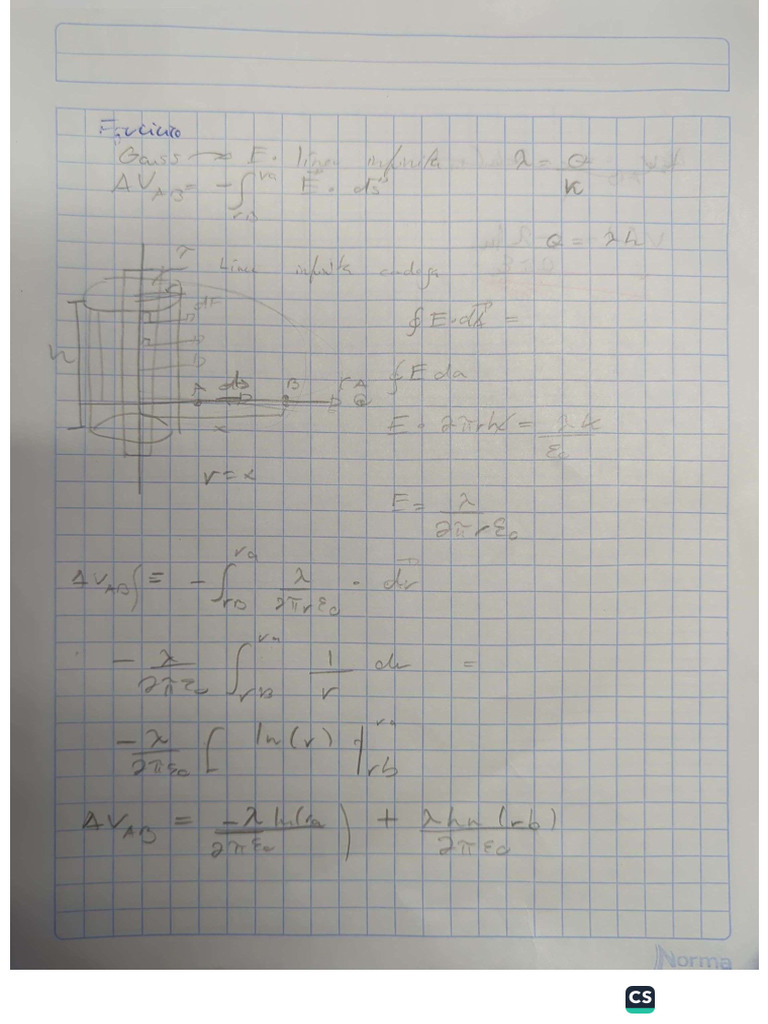 Ejercicio
Gauss → E · linea infinita λ = Q/h
ΔV_AB = -∫_rB^ra E⃗ · ds⃗
Q = λh
λ Linea infinita
r
dr
∮E·da⃗ =
h
A ds B r A
∮E da
x
E · 2πrh = λh/ε₀
r = x
E = λ/2πrε₀
ΔV_AB = -∫_rB^ra λ/2πrε₀ · dr⃗
-λ/2πε₀ ∫_rB^ra 1/r dr =
-λ/2πε₀ [ ln(r) |_rb^ra
ΔV_AB = -λ ln(ra)/2πε₀ + λ ln (rb)/2πε₀
Norma
CS